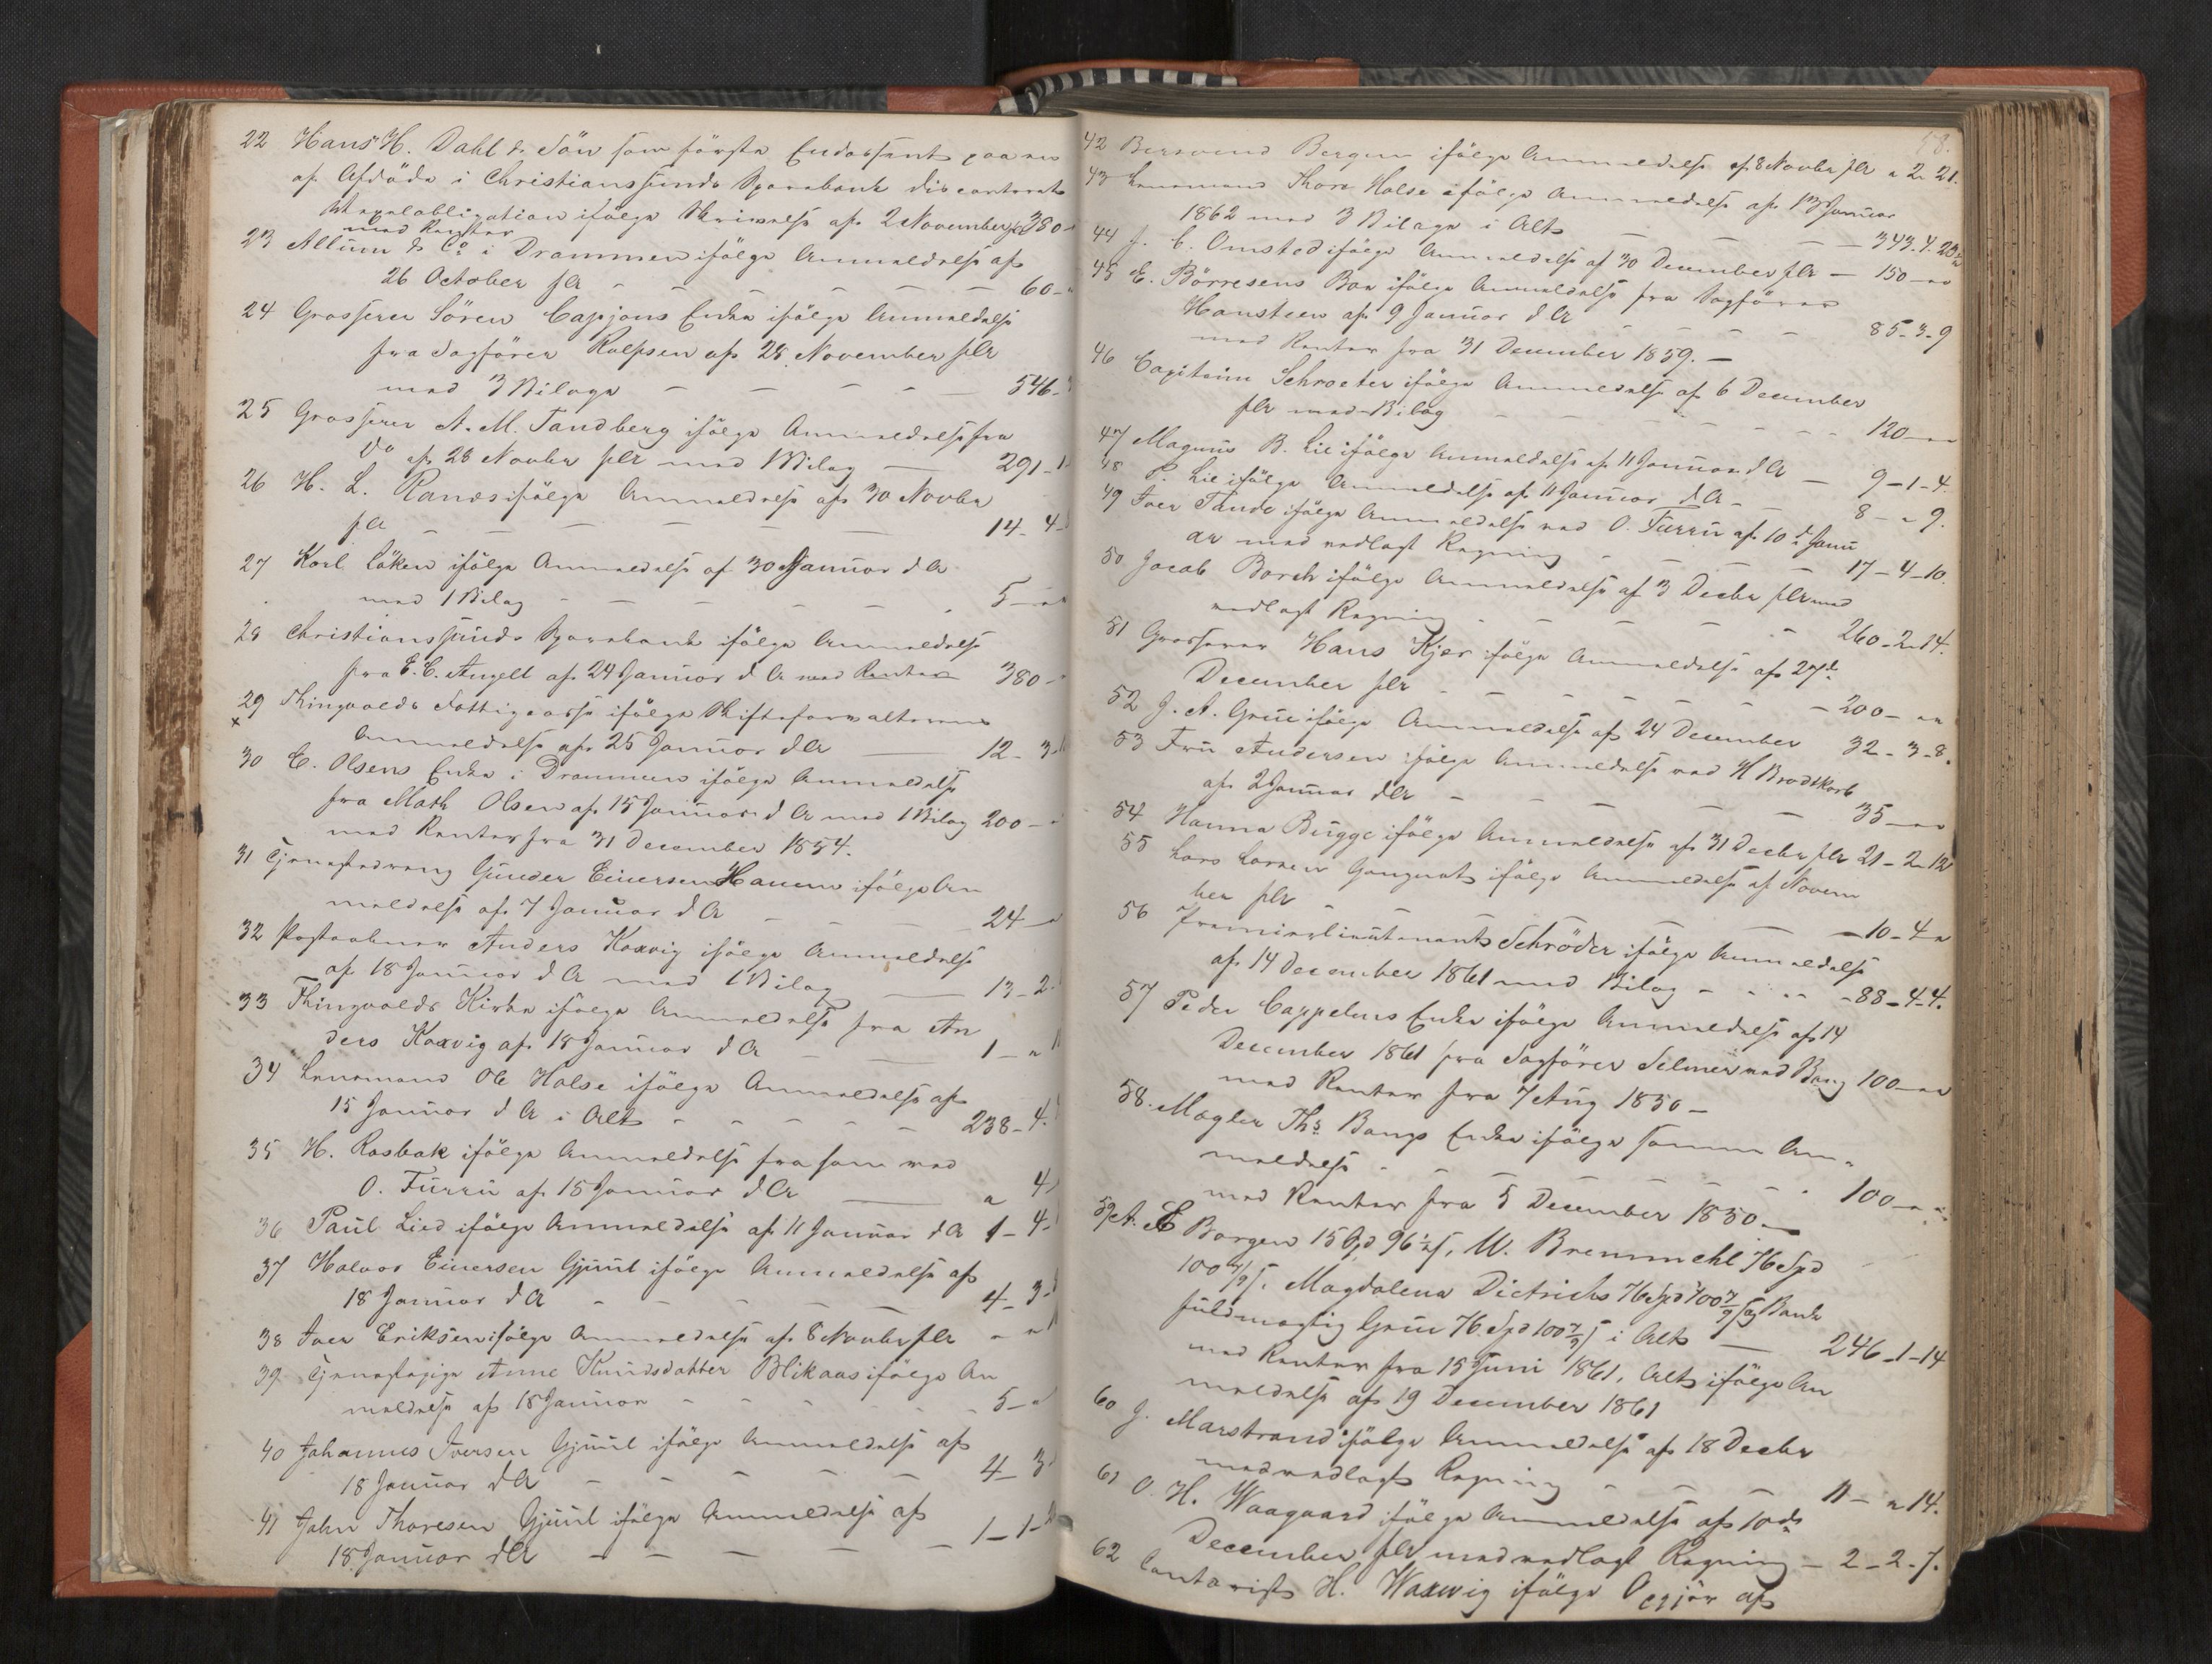 22 Hans H. Dahl & Sön som förste Endossent paa en
af Afdöde i Christianssunds Sparebank disconteret
Vexelobligation ifölge Skrivelse af 2 November f A 380-
med Renter
23 Allum & Co i Drammen ifölge Anmeldelse af
26 October f A - - - - - - 60-
24 Grosserer Sören Cappjons Enke ifölge Anmeldelse
fra Sagförer Rolfsen af 28 November f A
med 3 Bilage - - - - 546-
25 Grosserer A. M. Tandberg ifölge Anmeldelse fra
Do af 28 Novbr f A med 1 Bilag - 291-1
26 H. L. Ranes ifölge Anmeldelse af 30 Novbr
f A - - - - - 14-4-
27 Karl Löken ifölge Anmeldelse af 30 Januar d A
med 1 Bilag - - - - - 5-
28 Christianssunds Sparebank ifölge Anmeldelse
fra E. C. Angell af 24 Januar d A med Renter 380-
29 Thingvolds Fattigcasse ifölge Skifteforvalterens
x
Anmeldelse af 25 Januar d A - 12-3-
30 C. Olsens Enke i Drammen ifölge Anmeldelse
fra Math Olsen af 15 Januar d A med 1 Bilag 200-
med Renter fra 31 December 1854.
31 Tjenestedreng Gunder Einersen Hanem ifölge An
meldelse af 7 Januar d A - - - 24-
32 Postaabner Anders Koxvig ifölge Anmeldelse
af 18 Januar d A med 1 Bilag - 13-2-
33 Thingvolds Kirke ifölge Anmeldelse fra An
ders Koxvig af 18 Januar d A - - 1-"
34 Lensmand Ole Halse ifölge Anmeldelse af
15 Januar d A i Alt - - - - 238-4-
35 H. Rosbak ifölge Anmeldelse fra ved
O. Furru af 15 Januar d A - " 4-
36 Paul Lied ifölge Anmeldelse af 11 Januar d A 1-4-
37 Halvor Einersen Gjuul ifölge Anmeldelse af
18 Januar d A - - - - 4-3-
38 Iver Eriksen ifölge Anmeldelse af 8 Novbr f A - "
39 Tjenestepige Anne Knudsdatter Blikaas ifölge An
meldelse af 18 Januar - - - - 5-
40 Johannes Iversen Gjuul ifölge Anmeldelse af
18 Januar d A - - - - - 4-3
41 John Thoresen Gjuul ifölge Anmeldelse af
18 Januar d A - - - - - 1-1-
58.
42 Bersvend Bergem ifölge Anmeldelse af 8 Novbr f A " 2-21.
43 Lensmand Thore Halse ifölge Anmeldelse af 13 Januar
1862 med 3 Bilage i Alt - - - - 343.4.23
44 J. C. Omsted ifölge Anmeldelse af 30 December f A - 150-""
45 E. Börresens Boe ifölge Anmeldelse fra Sagförer
Hansteen af 9 Januar d A - - - - 85-3-9
med Renter fra 31 December 1859. -
46 Capitain Schroeter ifölge Anmeldelse af 6 December
f A med Bilag - - - - - - 120-""
47 Magnus B. Lie ifölge Anmeldelse af 11 Januar d A - 9-1-4.
48 P. Lie ifölge Anmeldelse af 11 Januar d A - - 8-"9.
49 Iver Tande ifölge Anmeldelse ved O. Furru af 10de Janu
ar med vedlagt Regning - - - - 17-4-10.
50 Jacob Borch ifölge Anmeldelse af 3 Decbr f A med
vedlagt Regning - - - - 260-2-14.
51 Grosserer Hans Kjer ifölge Anmeldelse af 27de
December f A - - - - - - 200-""
52 J. A. Grue ifölge Anmeldelse af 24 December 32-3-8.
53 Fru Andersen ifölge Anmeldelse ved H Brodtkorb
af 2 Januar d A - - - - - 35-""
54 Hanna Bugge ifölge Anmeldelse af 31 Decbr f A 21-2-12
55 Lars Larsen Gangnæt ifölge Anmeldelse af Novem
ber f A - - - - - 10-4-"
56 Premierlieutenant Schröder ifölge Anmeldelse
af 14 December 1861 med Bilag - - - 88-4-4.
57 Peder Cappelens Enke ifölge Anmeldelse af 14
December 1861 fra Sagförer Selmer med Bang 100-""
med Renter fra 7 Aug 1850 -
58. Mægler Ths Bangs Enke ifölge samme An-
meldelse - - - - - - 100-""
med Renter fra 5 December 1850 -
59 A. E Borgen 15 Spd 96 1/2 s, W. Bremmehl 76 Spd
100 7/9 s. Magdalena Dietrichs 76 Spd 100 7/9 s og Bank
fuldmægtig Grue 76 Spd 100 7/9 s i Alt - 246-1-14
med Renter fra 15 Juni 1861, Alt ifölge An
meldelse af 19 December 1861
60 J. Marstrand ifölge Anmeldelse af 18 Decbr
med vedlagt Regning - - - 11-"14.
61 O. H. Waagaard ifölge Anmeldelse af 10de
December f A med vedlagt Regning - 2-2-7.
62 Contorist H. Waxwig ifölge Opgjör af